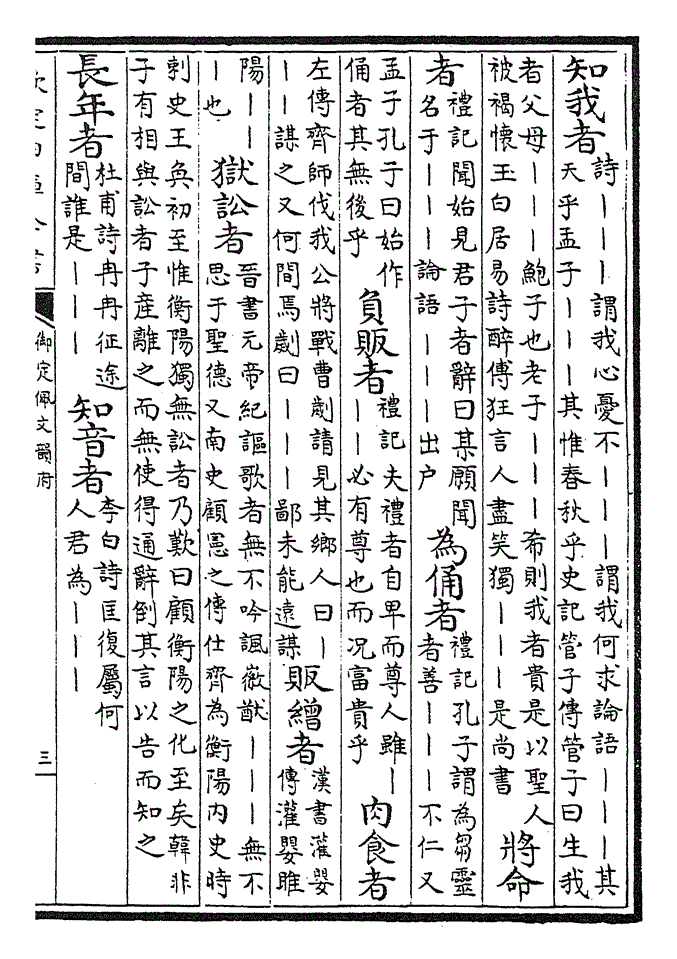 知我者
詩丨丨丨謂我心憂不丨丨丨謂我何求論語丨丨丨其
天乎孟子丨丨丨其惟春秋乎史記管子傳管子曰生我
者父母丨丨丨鮑子也老子丨丨丨希則我者貴是以聖人
被褐懷玉白居易詩醉傅狂言人盡笑獨丨丨丨是尚書
將命
者
禮記聞始見君子者辭曰某願聞
名于丨丨丨論語丨丨丨出户
為俑者
禮記孔子謂為芻靈
者善丨丨丨不仁又
孟子孔子曰始作
俑者其無後乎
負販者
禮記夫禮者自卑而尊人雖丨
丨丨必有尊也而况富貴乎
肉食者
左傳齊師伐我公將戰曹劌請見其鄉人曰丨
丨丨謀之又何間焉劌曰丨丨丨鄙未能遠謀
販繒者
漢書灌嬰
傳灌嬰睢
陽丨丨
丨也
獄訟者
晉書元帝紀謳歌者無不吟諷徽猷丨丨丨無不
思于聖德又南史顧憲之傳仕齊為衡陽内史時
刺史王奐初至惟衡陽獨無訟者乃歎曰顧衡陽之化至矣韓非
子有相與訟者子產離之而無使得通辭倒其言以告而知之
長年者
杜甫詩冉冉征途
間誰是丨丨丨
知音者
李白詩匡復屬何
人君為丨丨丨
欽定四庫全書
御定佩文韻府
三